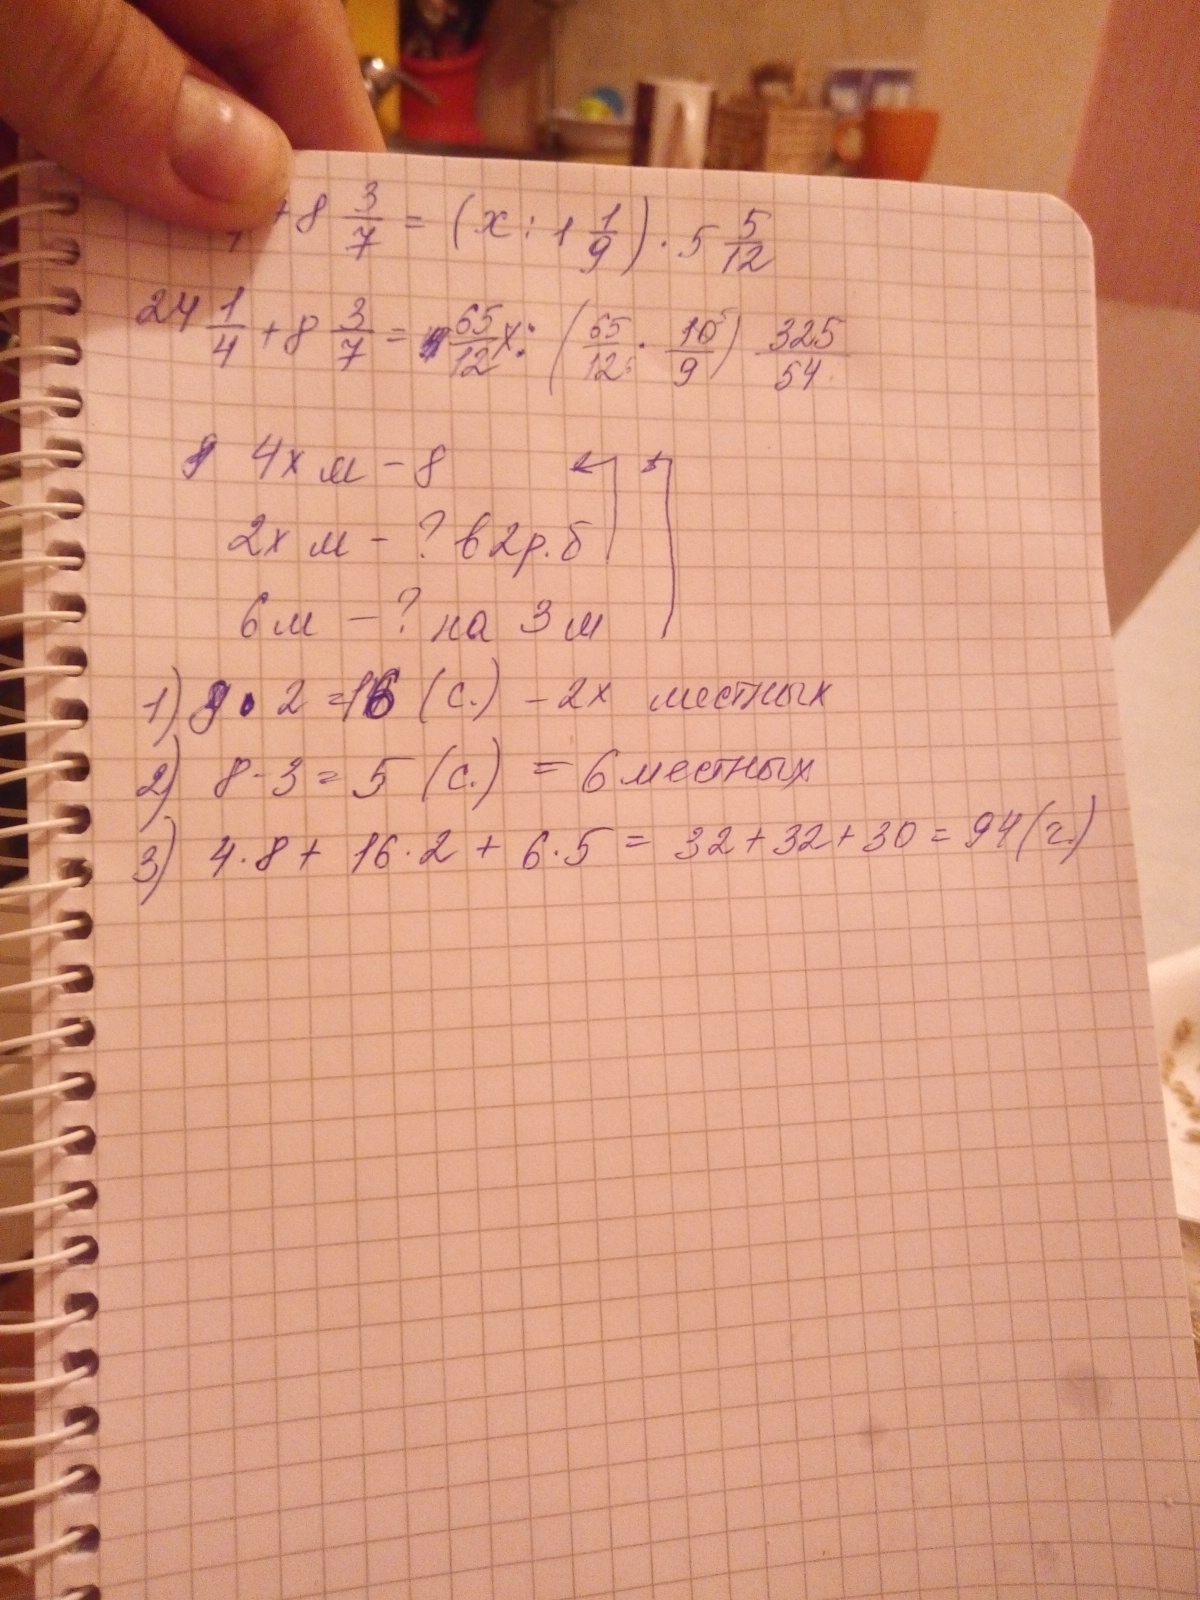 + 8 3/7 = (x : 1 1/9) · 5 5/12
24 1/4 + 8 3/7 = 65/12 x : (65/12 · 10/9) 325/54
4х м - 8
2х м - ? в 2р. б
6 м - ? на 3 м
1) 8 · 2 = 16 (с.) - 2х местных
2) 8 - 3 = 5 (с.) = 6 местных
3) 4·8 + 16·2 + 6·5 = 32 + 32 + 30 = 94 (г.)